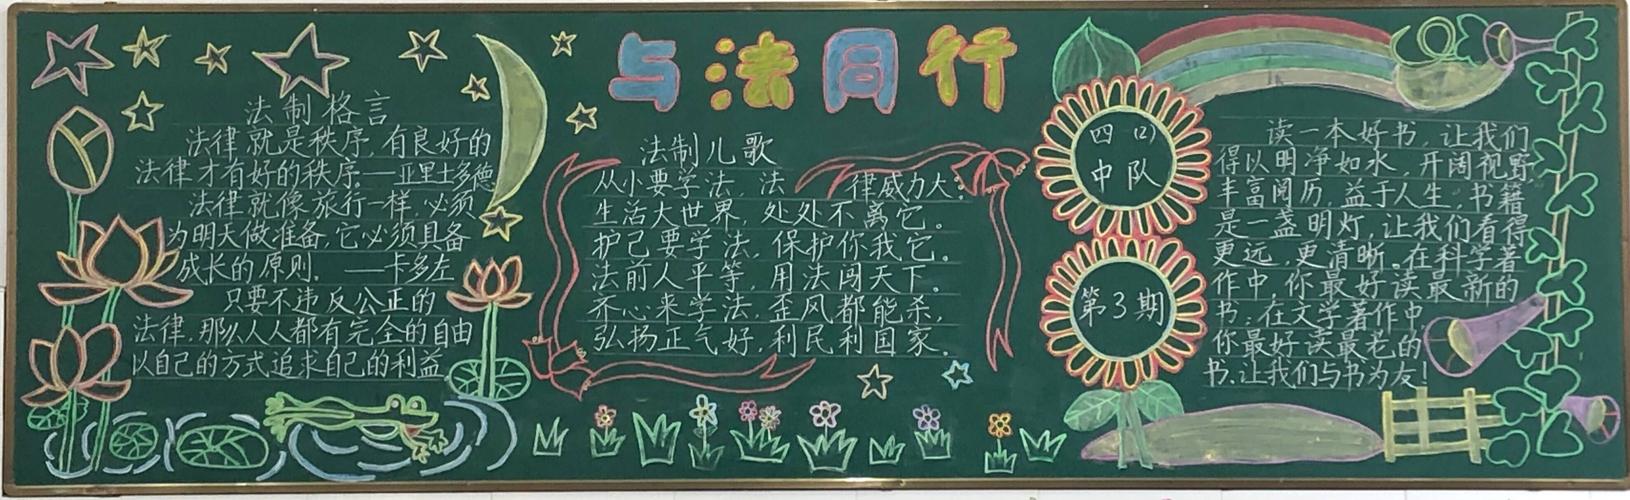 与法同行
法制格言
法律就是秩序,有良好的
法律才有好的秩序。——亚里士多德
法律就像旅行一样,必须
为明天做准备,它必须具备
成长的原则。——卡多左
只要不违反公正的
法律,那么人人都有完全的自由
以自己的方式追求自己的利益
法制儿歌
从小要学法,法律威力大。
生活大世界,处处不离它。
护己要学法,保护你我它。
法前人平等,用法闯天下。
齐心来学法,歪风都能杀,
弘扬正气好,利民利国家。
四(2)
中队
第3期
读一本好书,让我们
得以明净如水,开阔视野,
丰富阅历,益于人生,书籍
是一盏明灯,让我们看得
更远,更清晰。在科学著
作中,你最好读最新的
书:在文学著作中,
你最好读最老的
书。让我们与书为友!